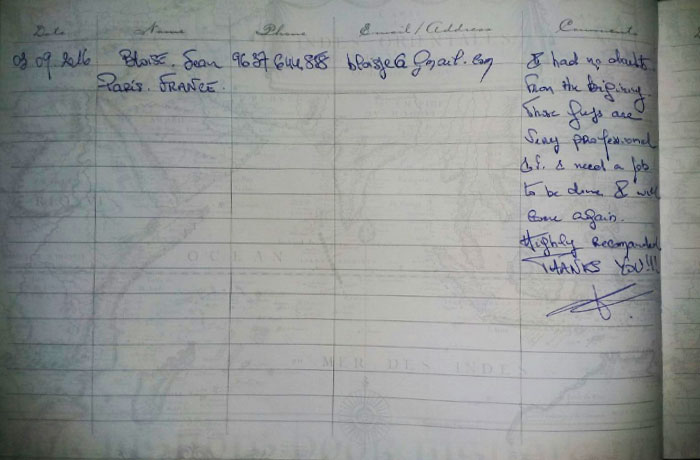 Date Name Phone Email/Address Comments
03 09.2016 Blaise. Jean 9637644858 blaisje@gmail.com I had no doubts
Paris. FRANCE. from the bigining.
those guys are
very professional
If I need a job
to be done I will
come again.
Highly Recomanded
THANKS YOU!!!
OCEAN
MER DES INDES